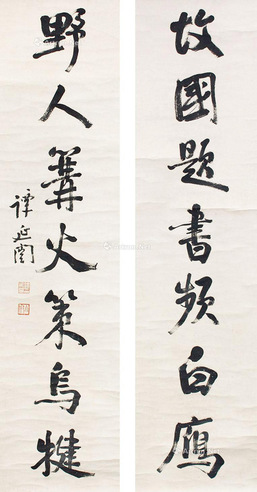 故國題書頻白鴈
野人篝火策烏犍
譚延闓